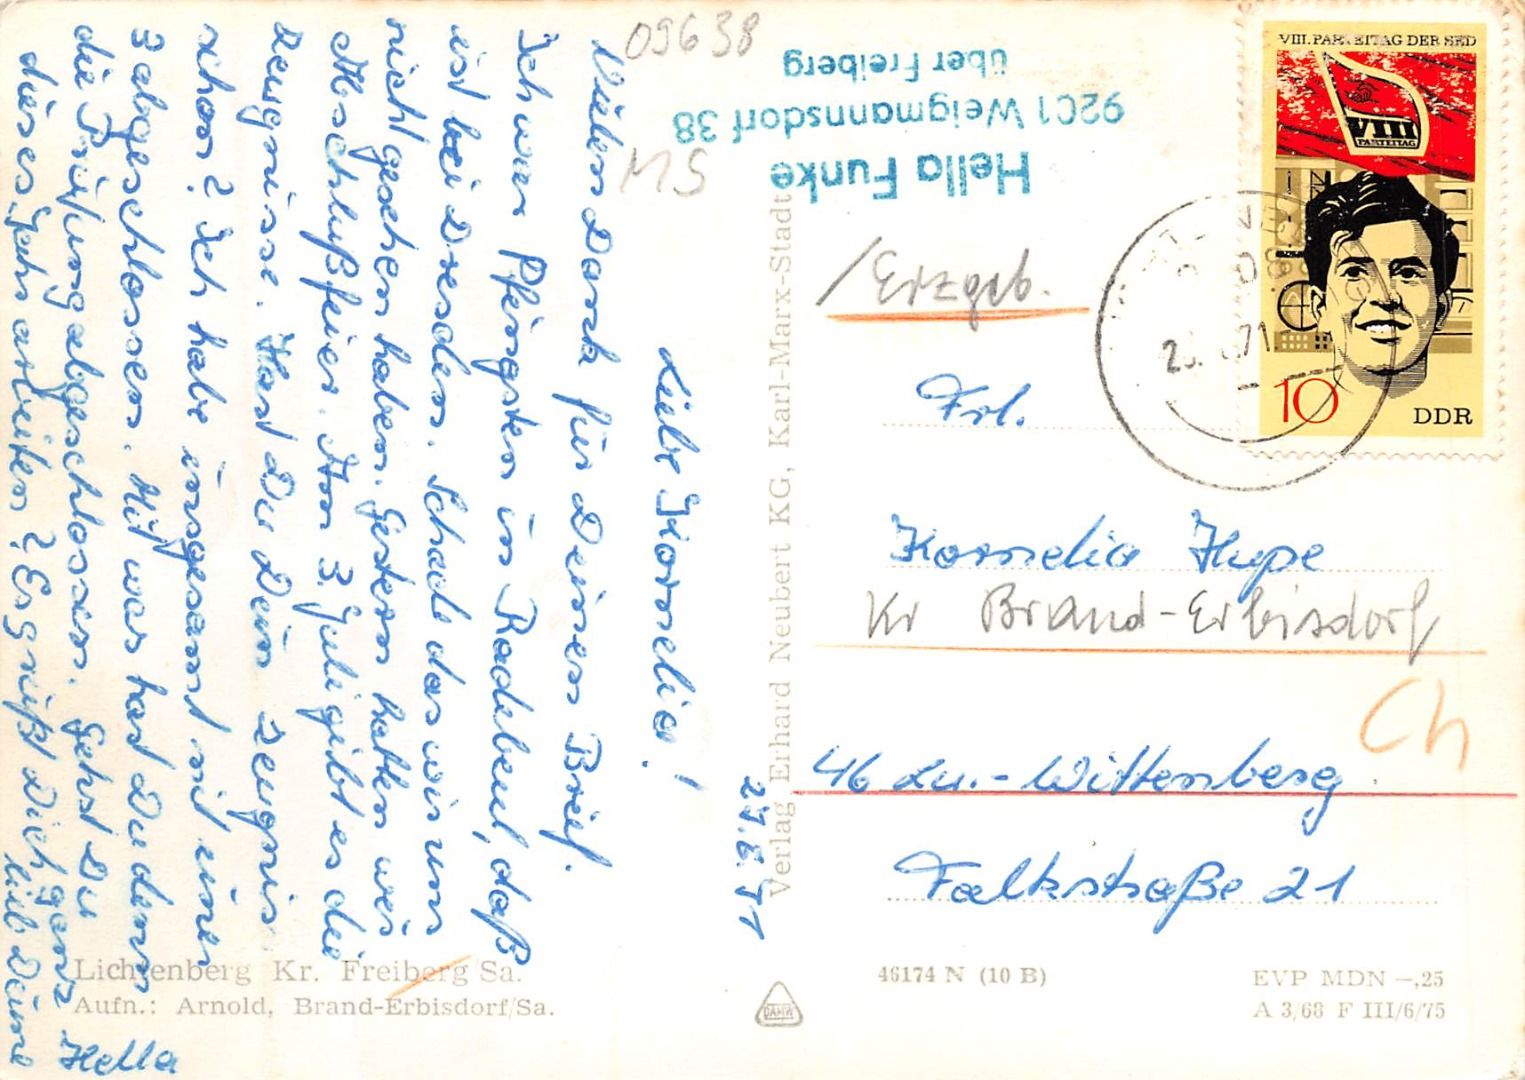 27.6.71
Liebe Kornelia!
Vielen Dank für Deinen Brief.
Ich war Pfingsten in Radebeul, daß
ist bei Dresden. Schade das wir uns
nicht gesehen haben. Gestern hatten wir
Abschlußfeier. Am 3. Juli gibt es die
Zeugnisse. Hast Du Dein Zeugnis
schon? Ich habe insgesamt mit einer
3 abgeschlossen. Mit was hast Du denn
die Prüfung abgeschlossen. Gehst Du
dieses Jahr arbeiten? Es grüßt Dich ganz
lieb Deine
Hella
Lichtenberg Kr. Freiberg/Sa.
Aufn.: Arnold, Brand-Erbisdorf/Sa.
09638
MS
Verlag Erhard Neubert KG, Karl-Marx-Stadt
Hella Funke
9201 Weigmannsdorf 38
über Freiberg
/Erzgeb.
VIII. PARTEITAG DER SED
VIII
PARTEITAG
10
DDR
Frl.
Kornelia Hype
Kr Brand-Erbisdorf
Ch
46 Lu.-Wittenberg
Falkstraße 21
46174 N (10 B)
EVP MDN –,25
A 3/68 F III/6/75